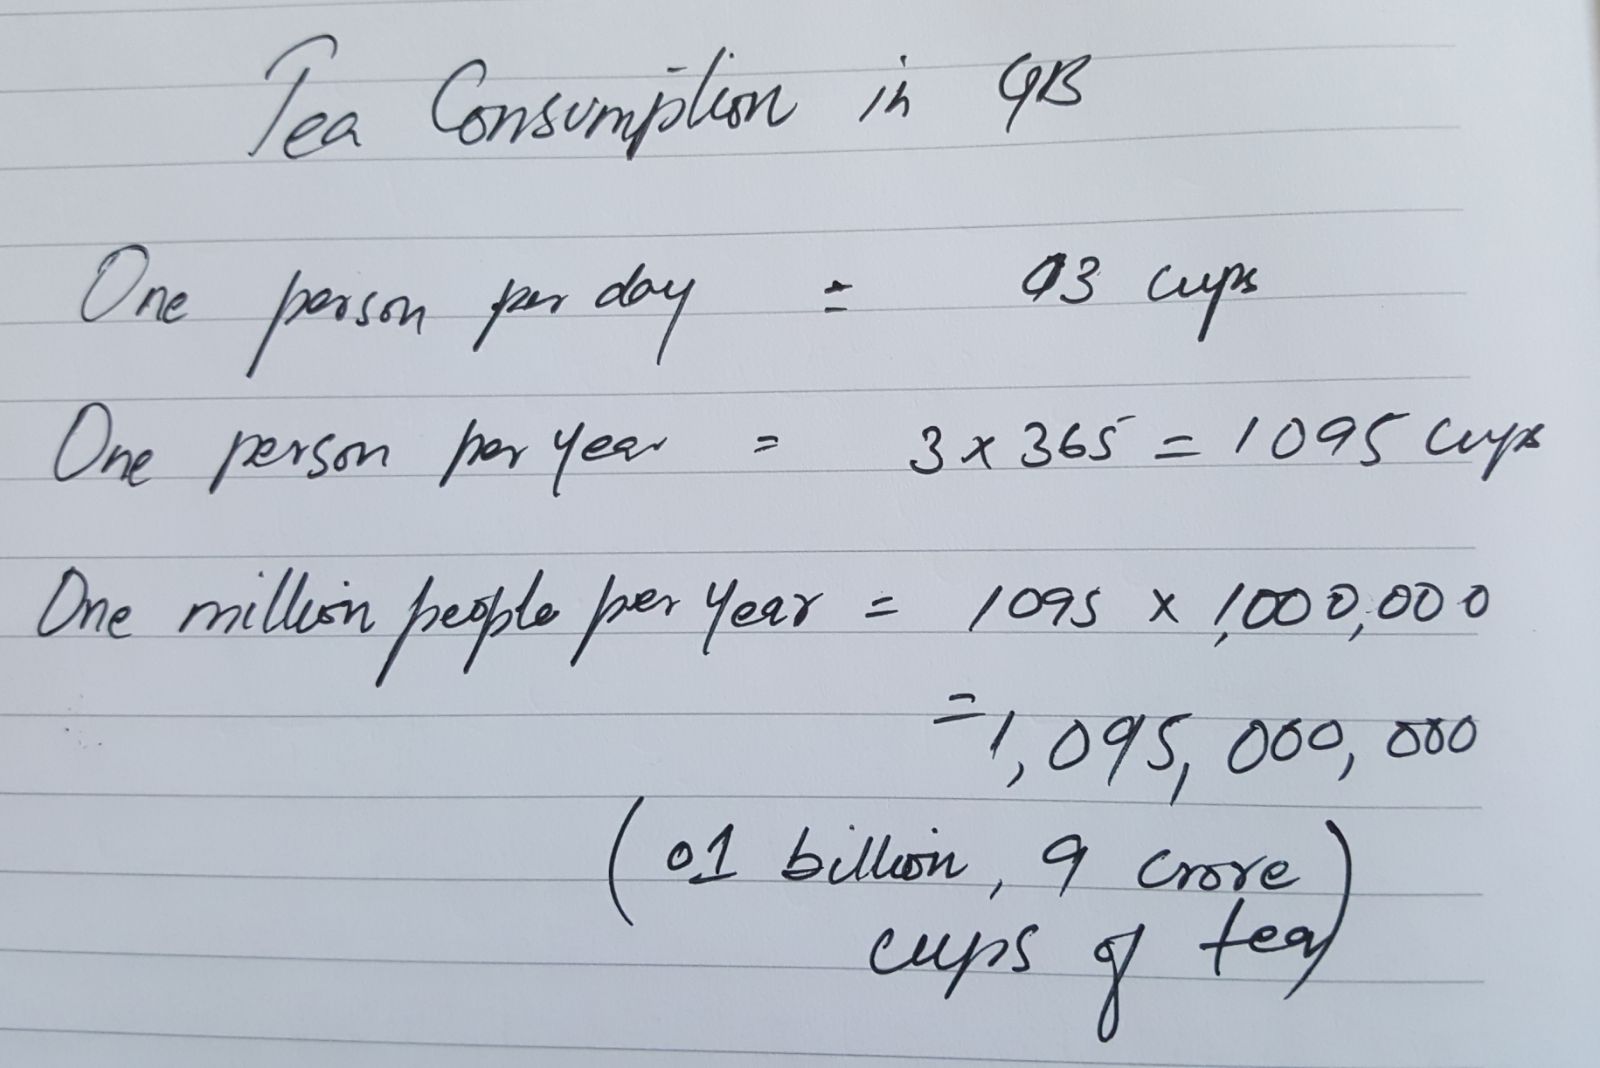 Tea Consumption in GB
One person per day = 03 cups
One person per year = 3 x 365 = 1095 cups
One million people per year = 1095 x 1,000,000
= 1,095,000,000
(01 billion, 9 crore
cups of tea)